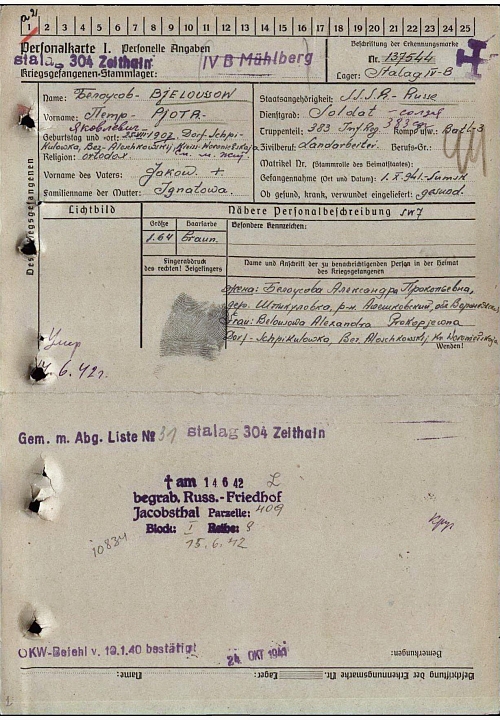 1 2 3 4 5 6 7 8 9 10 11 12 13 14 15 16 17 18 19 20 21 22 23 24 25
Personalkarte I. Personelle Angaben
Stalag 304 Zeithain
IV B Mühlberg
Kriegsgefangenen-Stammlager:
Beschriftung der Erkennungsmarke
Nr. 137544
Lager: Stalag IV-B
Des Kriegsgefangenen
Name: Белоусов - BJELOUSOW
Vorname: Петр - PJOTR
Яковлевич
Geburtstag und -ort: 1902 Dorf Schpi-
kulowka, Bez. Aloschkowskij
Religion: ortodox
Vorname des Vaters: Jakow +
Familienname der Mutter: Ignatowa.
Staatsangehörigkeit: U.S.S.R. - Russe
Dienstgrad: Soldat - солдат
Truppenteil: 383 Inf. Reg. Komp. usw.: Batl-3
383
Zivilberuf: Landarbeiter Berufs-Gr.:
Matrikel Nr. (Stammrolle des Heimatstaates):
Gefangennahme (Ort und Datum): 1. X. 941 - Sumsk
Ob gesund, krank, verwundet eingeliefert: gesund.
Lichtbild
Nähere Personalbeschreibung
Größe Haarfarbe
1.64 braun.
Besondere Kennzeichen:
Fingerabdruck
des rechten! Zeigefingers
Name und Anschrift der zu benachrichtigenden Person in der Heimat
des Kriegsgefangenen
жена: Белоусова Александра Прокопьевна,
дер. Шпикуловка, р-н Алешковский, обл
Frau: Belousowa Alexandra Prokopjewna
Dorf - Schpikulowka, Bez. Aloschkowskij
Wenden!
Умер
14.6.42г.
Gem. m. Abg. Liste № 31 Stalag 304 Zeithain
† am 14 6 42
begrab. Russ.-Friedhof
Jacobsthal Parzelle: 409
Block: I Reihe: 8
15.6.42
10834
OKW-Befehl v. 19.1.40 bestätigt
24. OKT 1941
Bemerkungen:
Beschriftung der Erkennungsmarke Nr.
Lager:
Name: